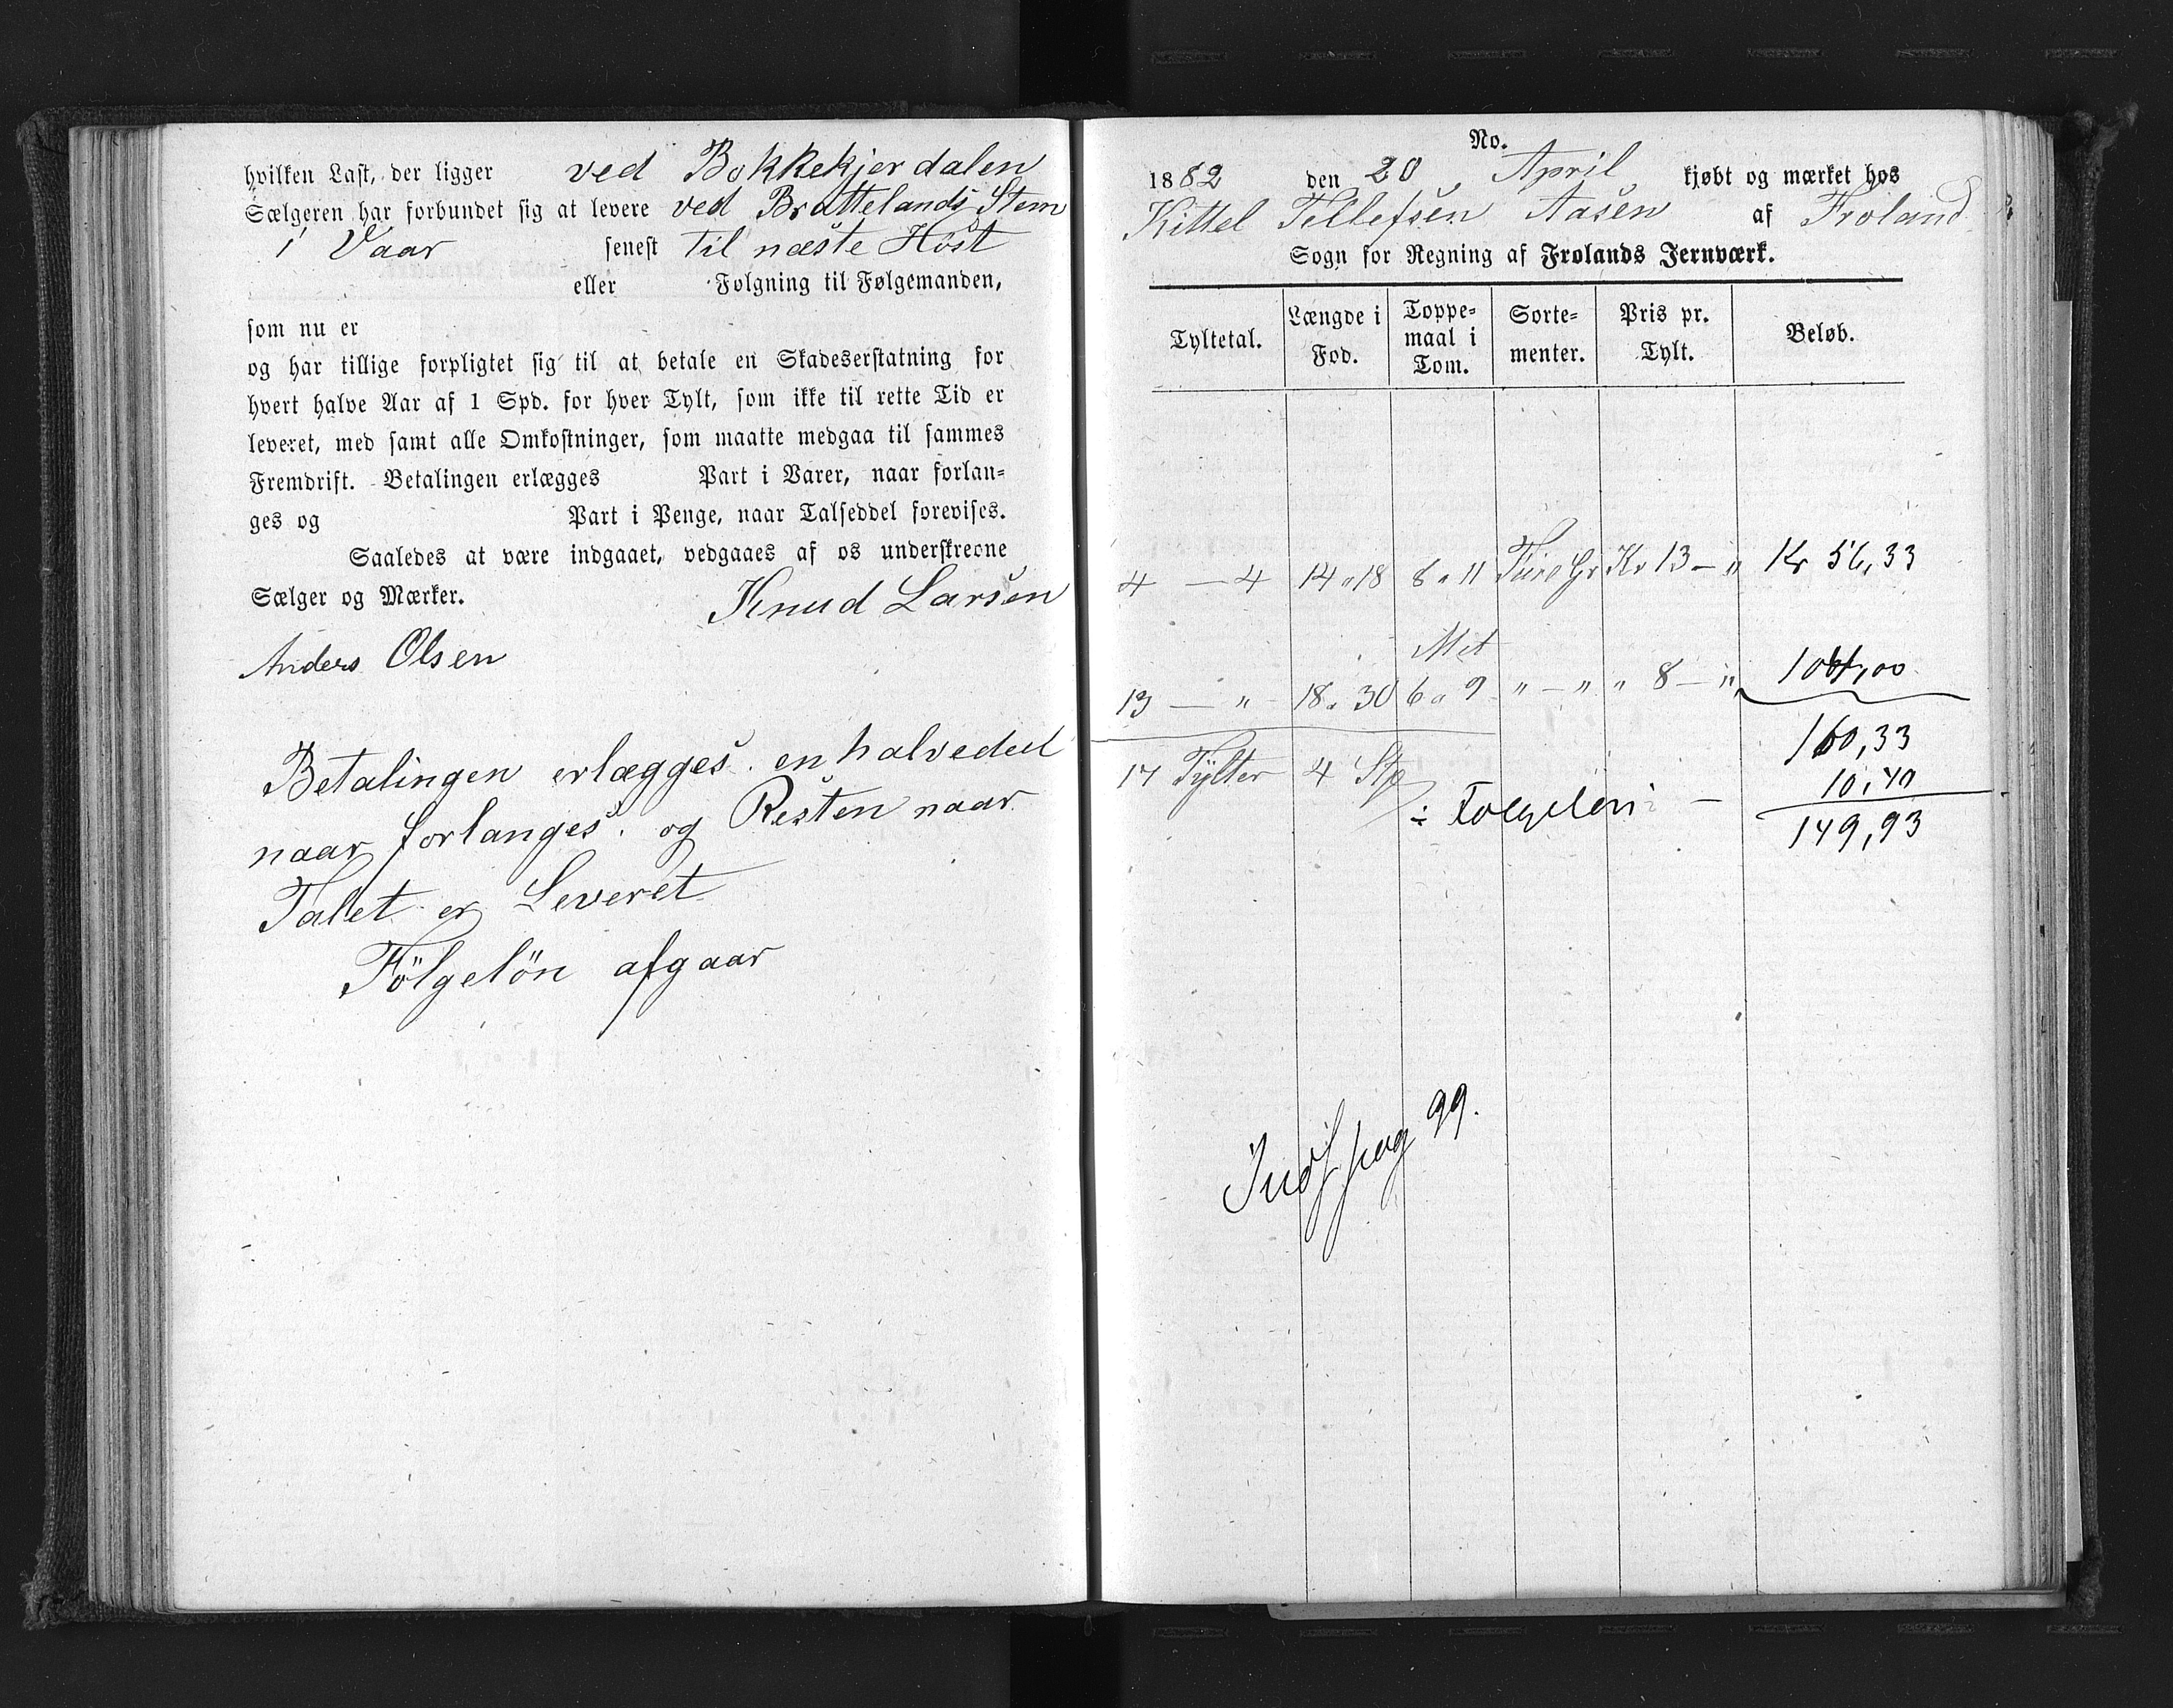 hvilken Last, der ligger ved Bokkekjerdalen
Sælgeren har forbundet sig at levere ved Brattelands Stem
i Vaar senest til næste Höst
eller Følgning til Følgemanden,
som nu er
og har tillige forpligtet sig til at betale en Skadeserstatning for
hvert halve Aar af 1 Spd. for hver Tylt, som ikke til rette Tid er
leveret, med samt alle Omkostninger, som maatte medgaa til sammes
Fremdrift. Betalingen erlægges Part i Varer, naar forlan=
ges og Part i Penge, naar Talseddel forevises.
Saaledes at være indgaaet, vedgaaes af os underskrevne
Sælger og Mærker. Knud Larsen
Anders Olsen
Betalingen erlægges en halvedeel
naar forlanges. og Resten naar
Tallet er Leveret
Fölgelön afgaar
No.
1882 den 20 April kjøbt og mærket hos
Kittel Tellefsen Aasen af Froland
Sogn for Regning af Frolands Jernværk.
Tyltetal. Længde i Fod. Toppe= maal i Tom. Sorte= menter. Pris pr. Tylt. Beløb.
4 — 4 14 a 18 8 a 11 Furo Gr Kr 13 — " Kr 56,33
Met
13 — " 18 a 30 6 a 9 " — " " 8 — " 104,00
160,33
17 Tÿlter 4 Stp
÷ Følgeløn — 10,40
149,93
Indf pag 99.